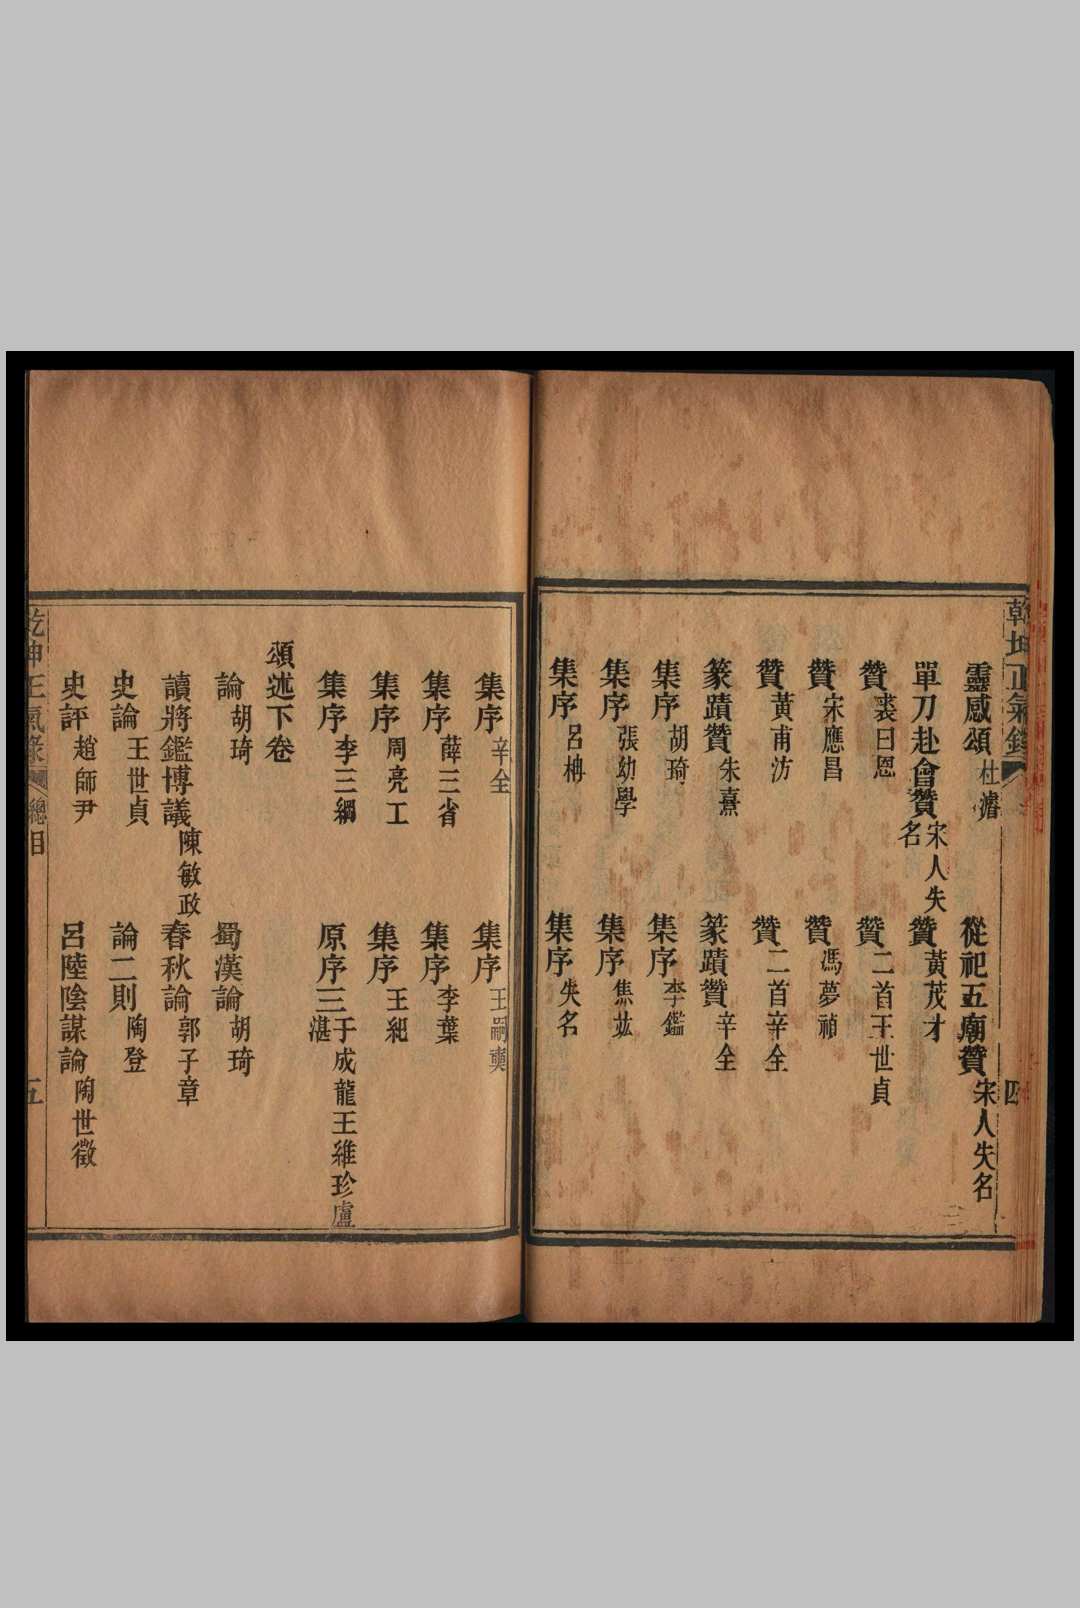 乾坤正氣錄 四
靈感頌 杜濬 從祀五廟贊 宋人失名
單刀赴會贊 宋人失名 贊 黃茂才
贊 裘曰恩 贊二首 王世貞
贊 宋應昌 贊 馮夢禎
贊 黃甫汸 贊二首 辛全
篆蹟贊 朱熹 篆蹟贊 辛全
集序 胡琦 集序 李鑑
集序 張幼學 集序 焦竑
集序 呂柟 集序 失名
集序 辛全 集序 王嗣奭
集序 薛三省 集序 李葉
集序 周亮工 集序 王紀
集序 李三綱 原序三 于成龍王維珍盧湛
頌述下卷
論 胡琦 蜀漢論 胡琦
讀將鑑博議 陳敏政 春秋論 郭子章
史論 王世貞 論二則 陶登
史評 趙師尹 呂陸陰謀論 陶世徵
乾坤正氣錄 總目 五